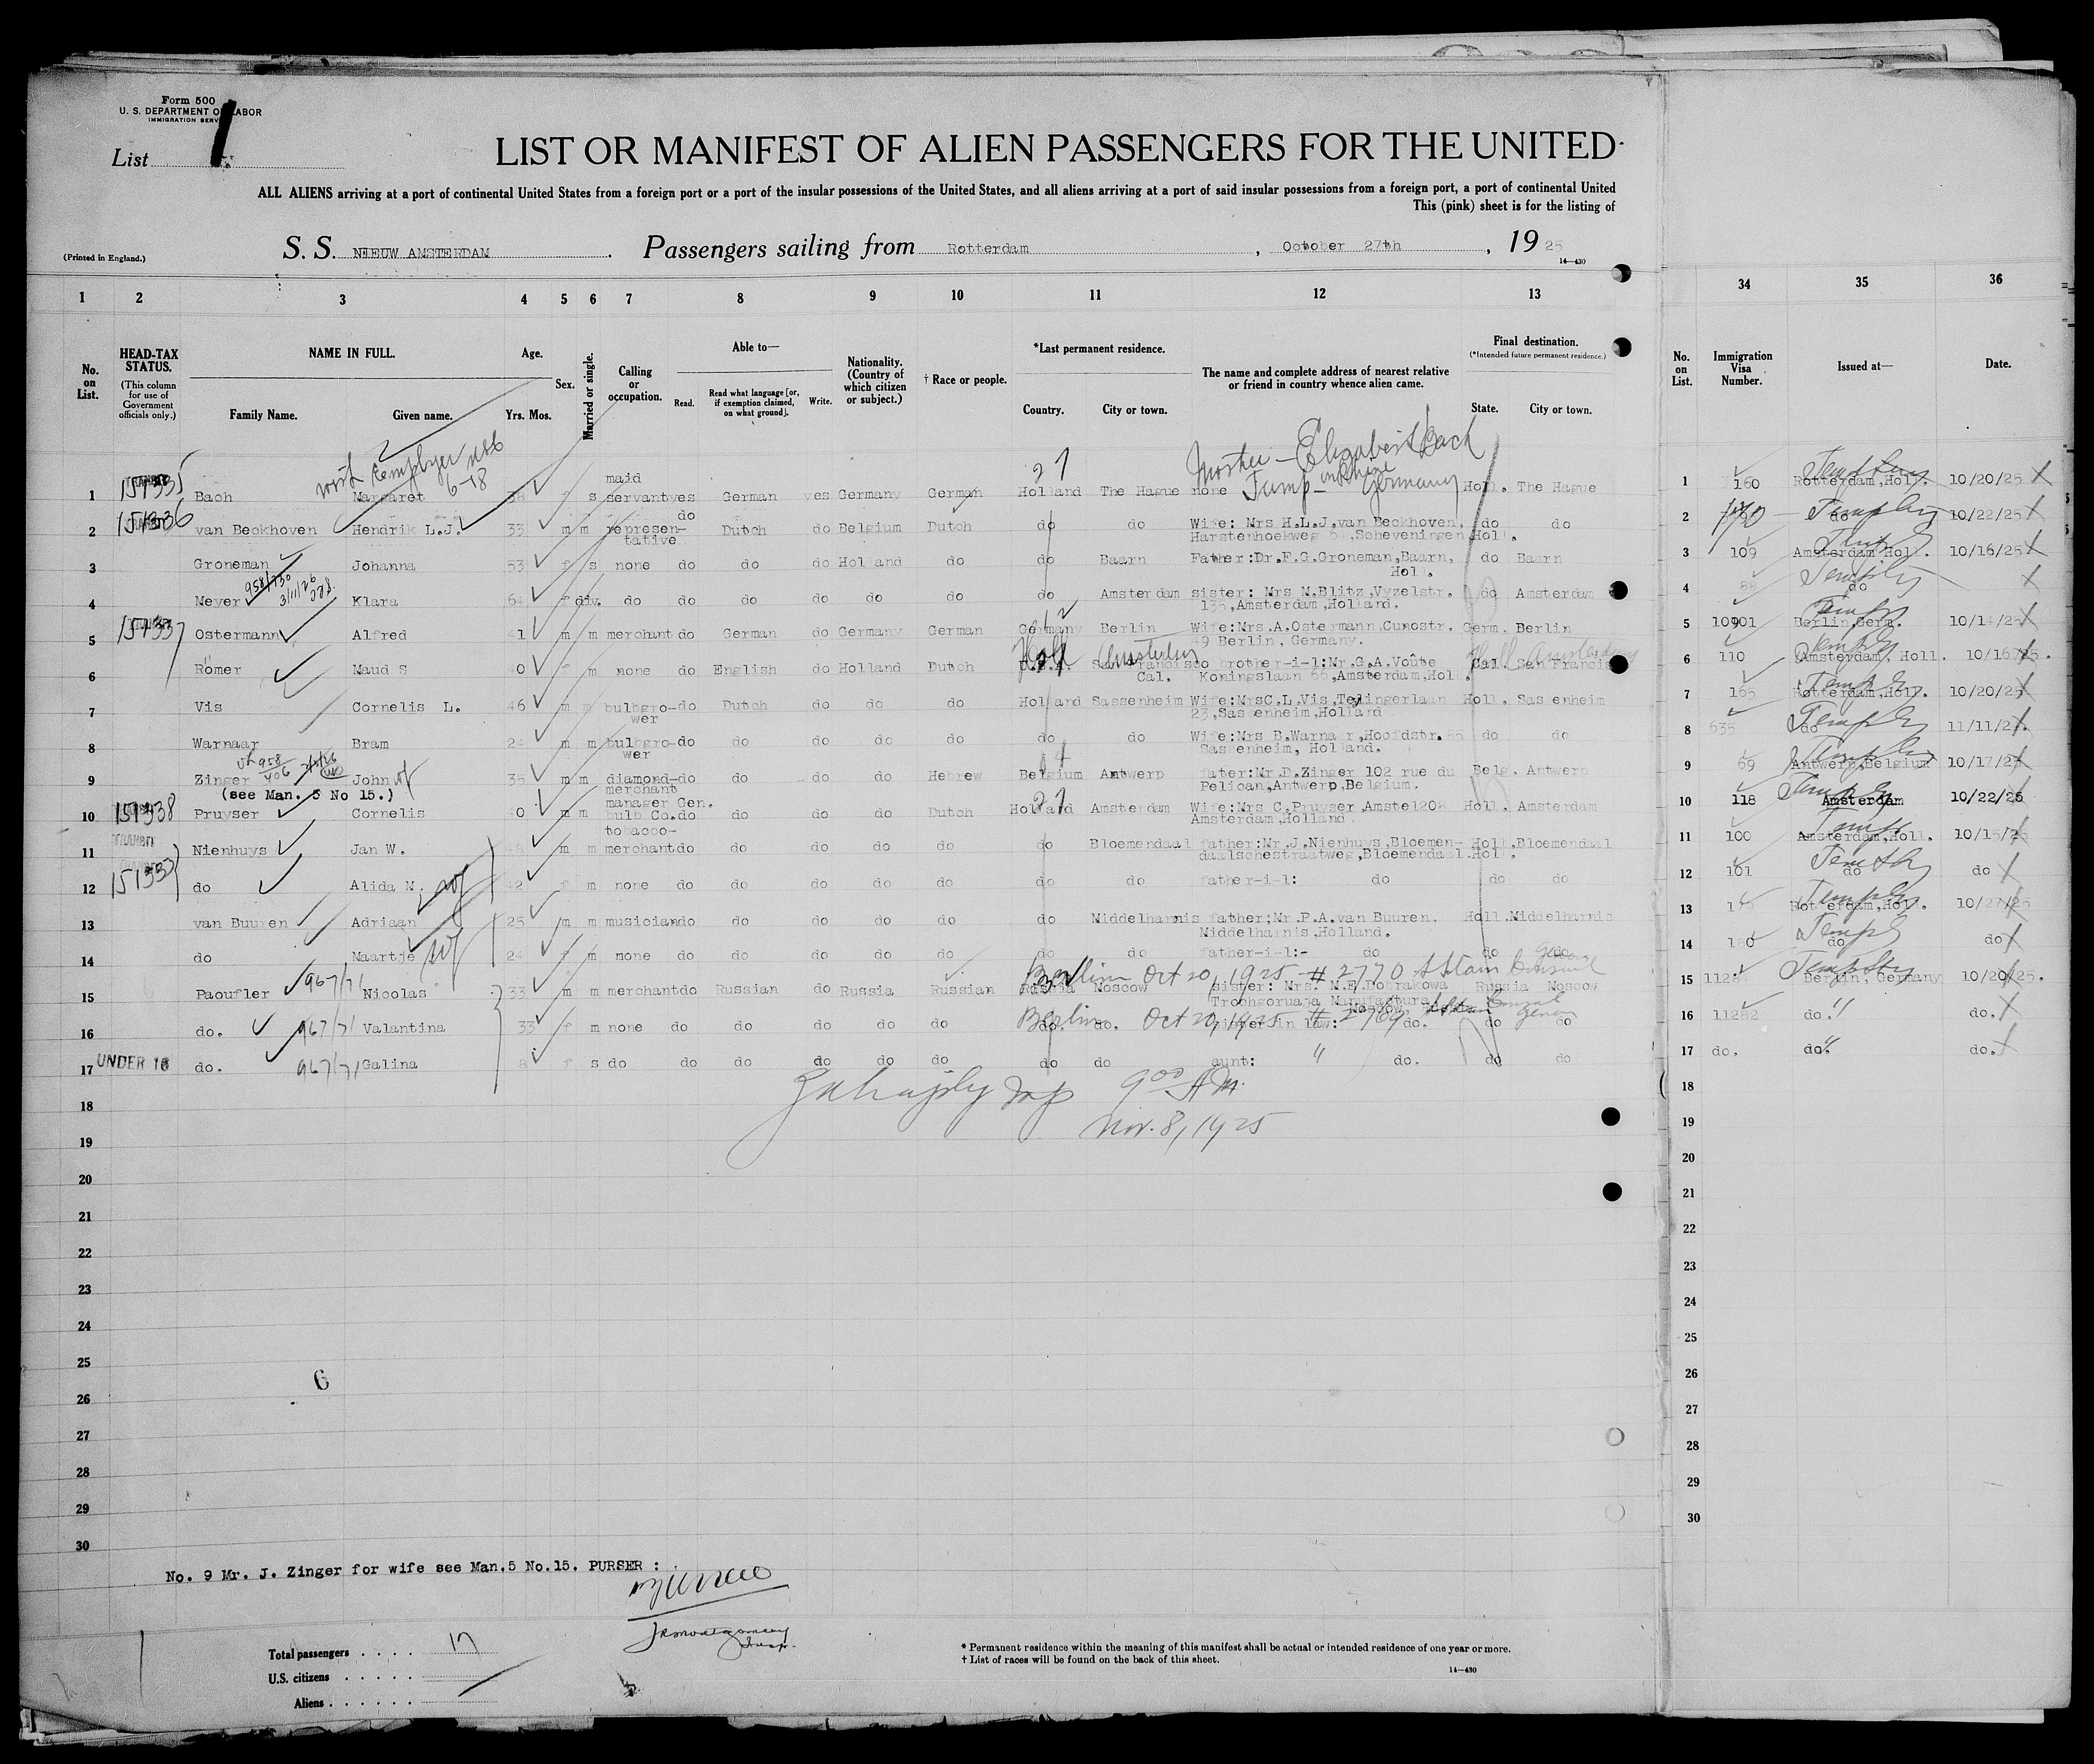 Form 500
U. S. DEPARTMENT OF LABOR
IMMIGRATION SERV
List 1
LIST OR MANIFEST OF ALIEN PASSENGERS FOR THE UNITED
ALL ALIENS arriving at a port of continental United States from a foreign port or a port of the insular possessions of the United States, and all aliens arriving at a port of said insular possessions from a foreign port, a port of continental United
This (pink) sheet is for the listing of
(Printed in England.)
S. S. NIEUW AMSTERDAM. Passengers sailing from Rotterdam, October 27th, 1925
14—430
1 2 3 4 5 6 7 8 9 10 11 12 13 34 35 36
No. on List.
HEAD-TAX STATUS.
(This column for use of Government officials only.)
NAME IN FULL.
Family Name. Given name.
Age.
Yrs. Mos.
Sex.
Married or single.
Calling or occupation.
Able to—
Read. Read what language [or, if exemption claimed, on what ground]. Write.
Nationality. (Country of which citizen or subject.)
† Race or people.
*Last permanent residence.
Country. City or town.
The name and complete address of nearest relative or friend in country whence alien came.
Final destination.
(*Intended future permanent residence.)
State. City or town.
No. on List.
Immigration Visa Number.
Issued at—
Date.
with employer 6-18
27
Mother — Elizabeth Bach
Germany
1 151335 Bach Margaret 38 f s maid servant yes German yes Germany German Holland The Hague none Holl. The Hague 1 160 Rotterdam, Holl. 10/20/25
2 151336 van Beckhoven Hendrik L.J. 33 m m represen-tative do Dutch do Belgium Dutch do do Wife: Mrs H.L.J.van Beckhoven, Harstenhoekweg, Scheveningen, Holl. do do 2 do 10/22/25
3 Groneman Johanna 53 f s none do do do Holland do do Baarn Father:Dr.F.G.Groneman,Baarn, Holl. do Baarn 3 109 Amsterdam Holl. 10/16/25
4 Meyer 958/730 3/11/26 Klara 64 f div. do do do do do do do Amsterdam sister: Mrs M.Blitz,Vyzelstr. 135,Amsterdam,Holland. do Amsterdam 4 88 do
5 151337 Ostermann Alfred 41 m m merchant do German do Germany German Germany Berlin Wife:Mrs.A.Ostermann,Cunostr. 49 Berlin, Germany. Germ. Berlin 5 10901 Berlin,Germ. 10/14/25
Holl Amsterdam
6 Römer Maud S 40 f m none do English do Holland Dutch San Francisco Cal. brother-i-l:Mr.G.A.Voûte Koningslaan 66,Amsterdam,Holl. Cal. San Francis 6 110 Amsterdam, Holl. 10/16/25.
7 Vis Cornelis L. 46 m m bulbgro-wer do Dutch do do do Holland Sassenheim Wife:MrsC.L.Vis,Teylingerlaan 23,Sassenheim,Holland Holl. Sassenheim 7 165 Rotterdam,Holl. 10/20/25
8 Warnaar Bram 24 m m bulbgro-wer do do do do do do do Wife:Mrs B.Warnaar,Hoofdstr. Sassenheim, Holland. do do 8 635 do 11/11/24
958/406
9 Zinger John 35 m m diamond-merchant do do do do Hebrew Belgium Antwerp fater:Mr.D.Zinger 102 rue du Pelican,Antwerp,Belgium. Belg. Antwerp 9 69 Antwerp,Belgium 10/17/25
(see Man. 5 No 15.)
10 151338 Pruyser Cornelis 40 m m manager Gen. bulb Co. do do do do Dutch Holland Amsterdam Wife:Mrs C.Pruyser Amstel208 Amsterdam,Holland Holl. Amsterdam 10 118 Amsterdam 10/22/25
11 TRANSIT Nienhuys Jan W. 48 m m tobacco-merchant do do do do do do Bloemendaal father:Mr.J.Nienhuys,Bloemen-daalschestraatweg,Bloemendaal.Holl. Holl. Bloemendaal 11 100 Amsterdam,Holl. 10/15/25
12 do Alida M. 42 f m none do do do do do do do father-i-l: do do do 12 101 do do
13 van Buuren Adriaan 25 m m musician do do do do do do Middelharnis father;Mr.P.A.van Buuren. Middelharnis,Holland. Holl. Middelharnis 13 Rotterdam,Holl. 10/27/25
14 do Maartje 24 f m none do do do do do do do father-i-l:- do do do 14 do do
Berlin Oct 20, 1925 - # 2770
15 Paoufler 967/71 Nicolas 33 m m merchant do Russian do Russia Russian Russia Moscow sister: Mrs. M.E.Dobrakowa Trochgornana Manufactura Moscow Russia Moscow 15 Berlin, Germany 10/20/25.
Berlin. Oct 20, 1925 # 2769
16 do. 967/71 Valantina 33 f m none do do do do do do do sister in law: do. do do 16 11282 do." do.
17 UNDER 16 do. 967/71 Galina 8 f s do do do do do do do do aunt: " do. do do 17 do. do" do.
18 18
9⁰⁰ AM.
Nov. 8, 1925
19 19
20 20
21 21
22 22
23 23
24 24
25 25
6
26 26
27 27
28 28
29 29
30 30
No. 9 Mr. J. Zinger for wife see Man.5 No.15. PURSER :
Total passengers . . . . 17
U.S. citizens . . . . .
Aliens . . . . . .
JR Montgomery Insp.
* Permanent residence within the meaning of this manifest shall be actual or intended residence of one year or more.
† List of races will be found on the back of this sheet.
14—430